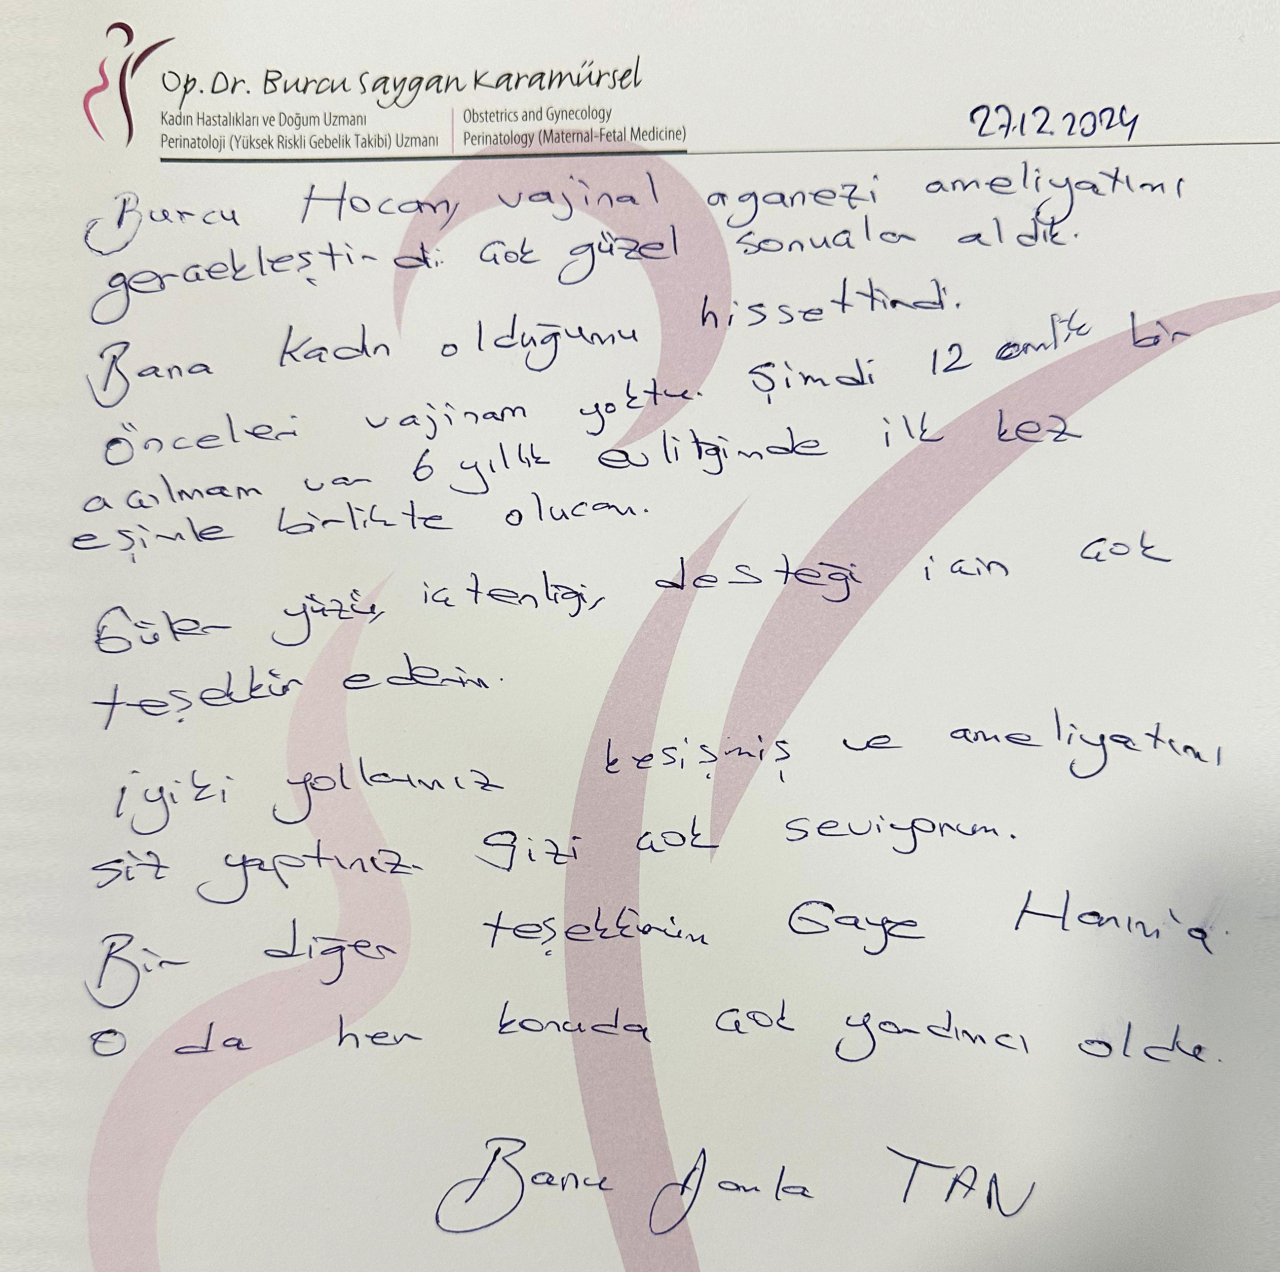 Op. Dr. Burcu Saygan Karamürsel
Kadın Hastalıkları ve Doğum Uzmanı
Perinatoloji (Yüksek Riskli Gebelik Takibi) Uzmanı
Obstetrics and Gynecology
Perinatology (Maternal-Fetal Medicine)
27.12.2024
Burcu Hocam, vajinal aganezi ameliyatımı
gerçekleştirdi. Çok güzel sonuçlar aldık.
Bana kadın olduğumu hissettirdi.
Önceleri vajinam yoktu. Şimdi 12 cmlik bir
açılmam var 6 yıllık evliliğimde ilk kez
eşimle birlikte olucam.
Güler yüzü, içtenliği, desteği için çok
teşekkür ederim.
İyiki yollarımız kesişmiş ve ameliyatımı
siz yaptınız. Sizi çok seviyorum.
Bir diğer teşekkürüm Gaye Hanım'a
O da her konuda çok yardımcı oldu.
Banu Damla TAN